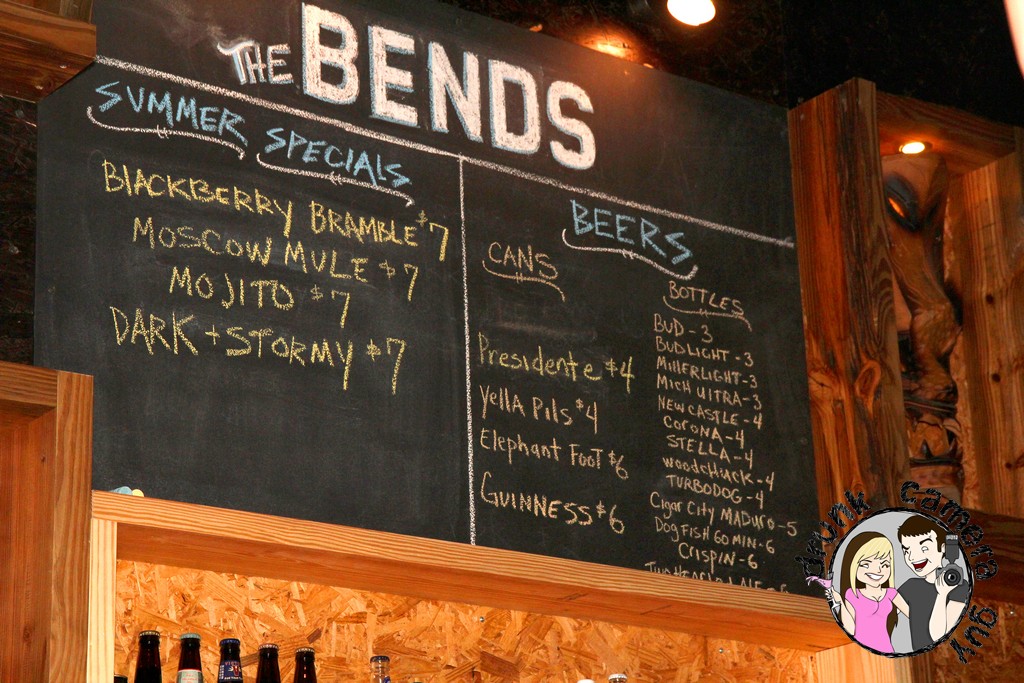 THE BENDS
SUMMER SPECIALS
BLACKBERRY BRAMBLE $7
MOSCOW MULE $7
MOJITO $7
DARK + STORMY $7
BEERS
CANS
Presidente $4
Yella Pils $4
Elephant Foot $6
GUINNESS $6
BOTTLES
BUD - 3
BUDLIGHT - 3
MillerLIGHT - 3
MICH ULTRA - 3
NEWCASTLE - 4
CORONA - 4
STELLA - 4
woodchuck - 4
TURBODOG - 4
Cigar City MADuro - 5
Dog FISH 60 MIN - 6
CRISPIN - 6
drunk camera guy